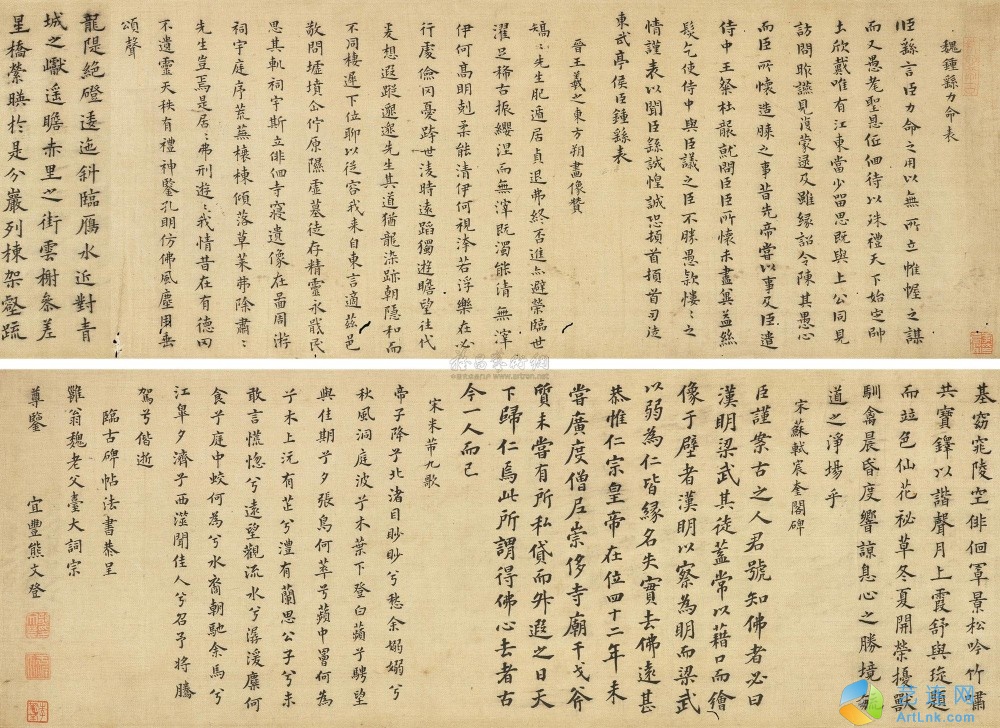 魏鍾繇力命表
臣繇言臣力命之用以無所立惟幄之謀
而又愚耄聖恩低佪待以殊禮天下始定帥
土欣戴唯有江東當少留思既與上公同見
訪問昨讌見復蒙逮及雖緣詔令陳其愚心
而臣所懷造膝之事昔先帝嘗以事及臣遣
侍中王粲杜襲就問臣臣所懷未盡奚益絲
髮乞使侍中與臣議之臣不勝愚款慺慺之
情謹表以聞臣繇誠惶誠恐頓首頓首司徒
東武亭侯臣鍾繇表
晉王羲之東方朔畫像贊
矯矯先生肥遁居貞退弗終否進亦避榮臨世
濯足稀古振纓涅而無滓既濁能清無滓
伊何高明剋柔能清伊何視洿若浮樂在必
行處儉罔憂跨世淩時遠蹈獨遊瞻望往代
爰想遐蹤邈邈先生其道猶龍染跡朝隱和而
不同棲遲下位聊以從容我來自東言適茲邑
敬問墟墳企佇原隰虛墓徒存精靈永戢民
思其軌祠宇斯立俳佪寺寢遺像在啚周游
祠宇庭序荒蕪榱棟傾落草萊弗除肅肅
先生豈焉是居居弗刑遊遊我情昔在有德罔
不遺靈天秩有禮神鑒孔明仿佛風塵用垂
頌聲
龍隄絕磴逶迤斜臨雁水近對青
城之巘遙瞻赤里之街雲榭參差
星橋縈暎於是分巖列棟架壑疏
基窈窕陵空俳佪罩景松吟竹嘯
共寶鐸以諧聲月上霞舒與琁題
而竝色仙花祕草冬夏開榮擾獸
馴禽晨昏度響諒息心之勝境
道之淨場乎
宋蘇軾宸奎閣碑
臣謹案古之人君號知佛者必曰
漢明梁武其徒蓋常以藉口而繪
像于壁者漢明以察為明而梁武
以弱為仁皆緣名失實去佛遠甚
恭惟仁宗皇帝在位四十二年未
嘗廣度僧尼崇侈寺廟干戈斧
質未嘗有所私貸而升遐之日天
下歸仁焉此所謂得佛心法者古
今一人而已
宋米芾九歌
帝子降兮北渚目眇眇兮愁余嫋嫋兮
秋風洞庭波兮木葉下登白蘋兮騁望
與佳期兮夕張鳥何萃兮蘋中罾何為
兮木上沅有芷兮澧有蘭思公子兮未
敢言慌惚兮遠望觀流水兮潺湲麋何
食兮庭中蛟何為兮水裔朝馳余馬兮
江臯夕濟兮西澨聞佳人兮召予將騰
駕兮偕逝
臨古碑帖法書恭呈
雖翁魏老父臺大詞宗
尊鑒
宜豐熊文登
ArtLnk.com